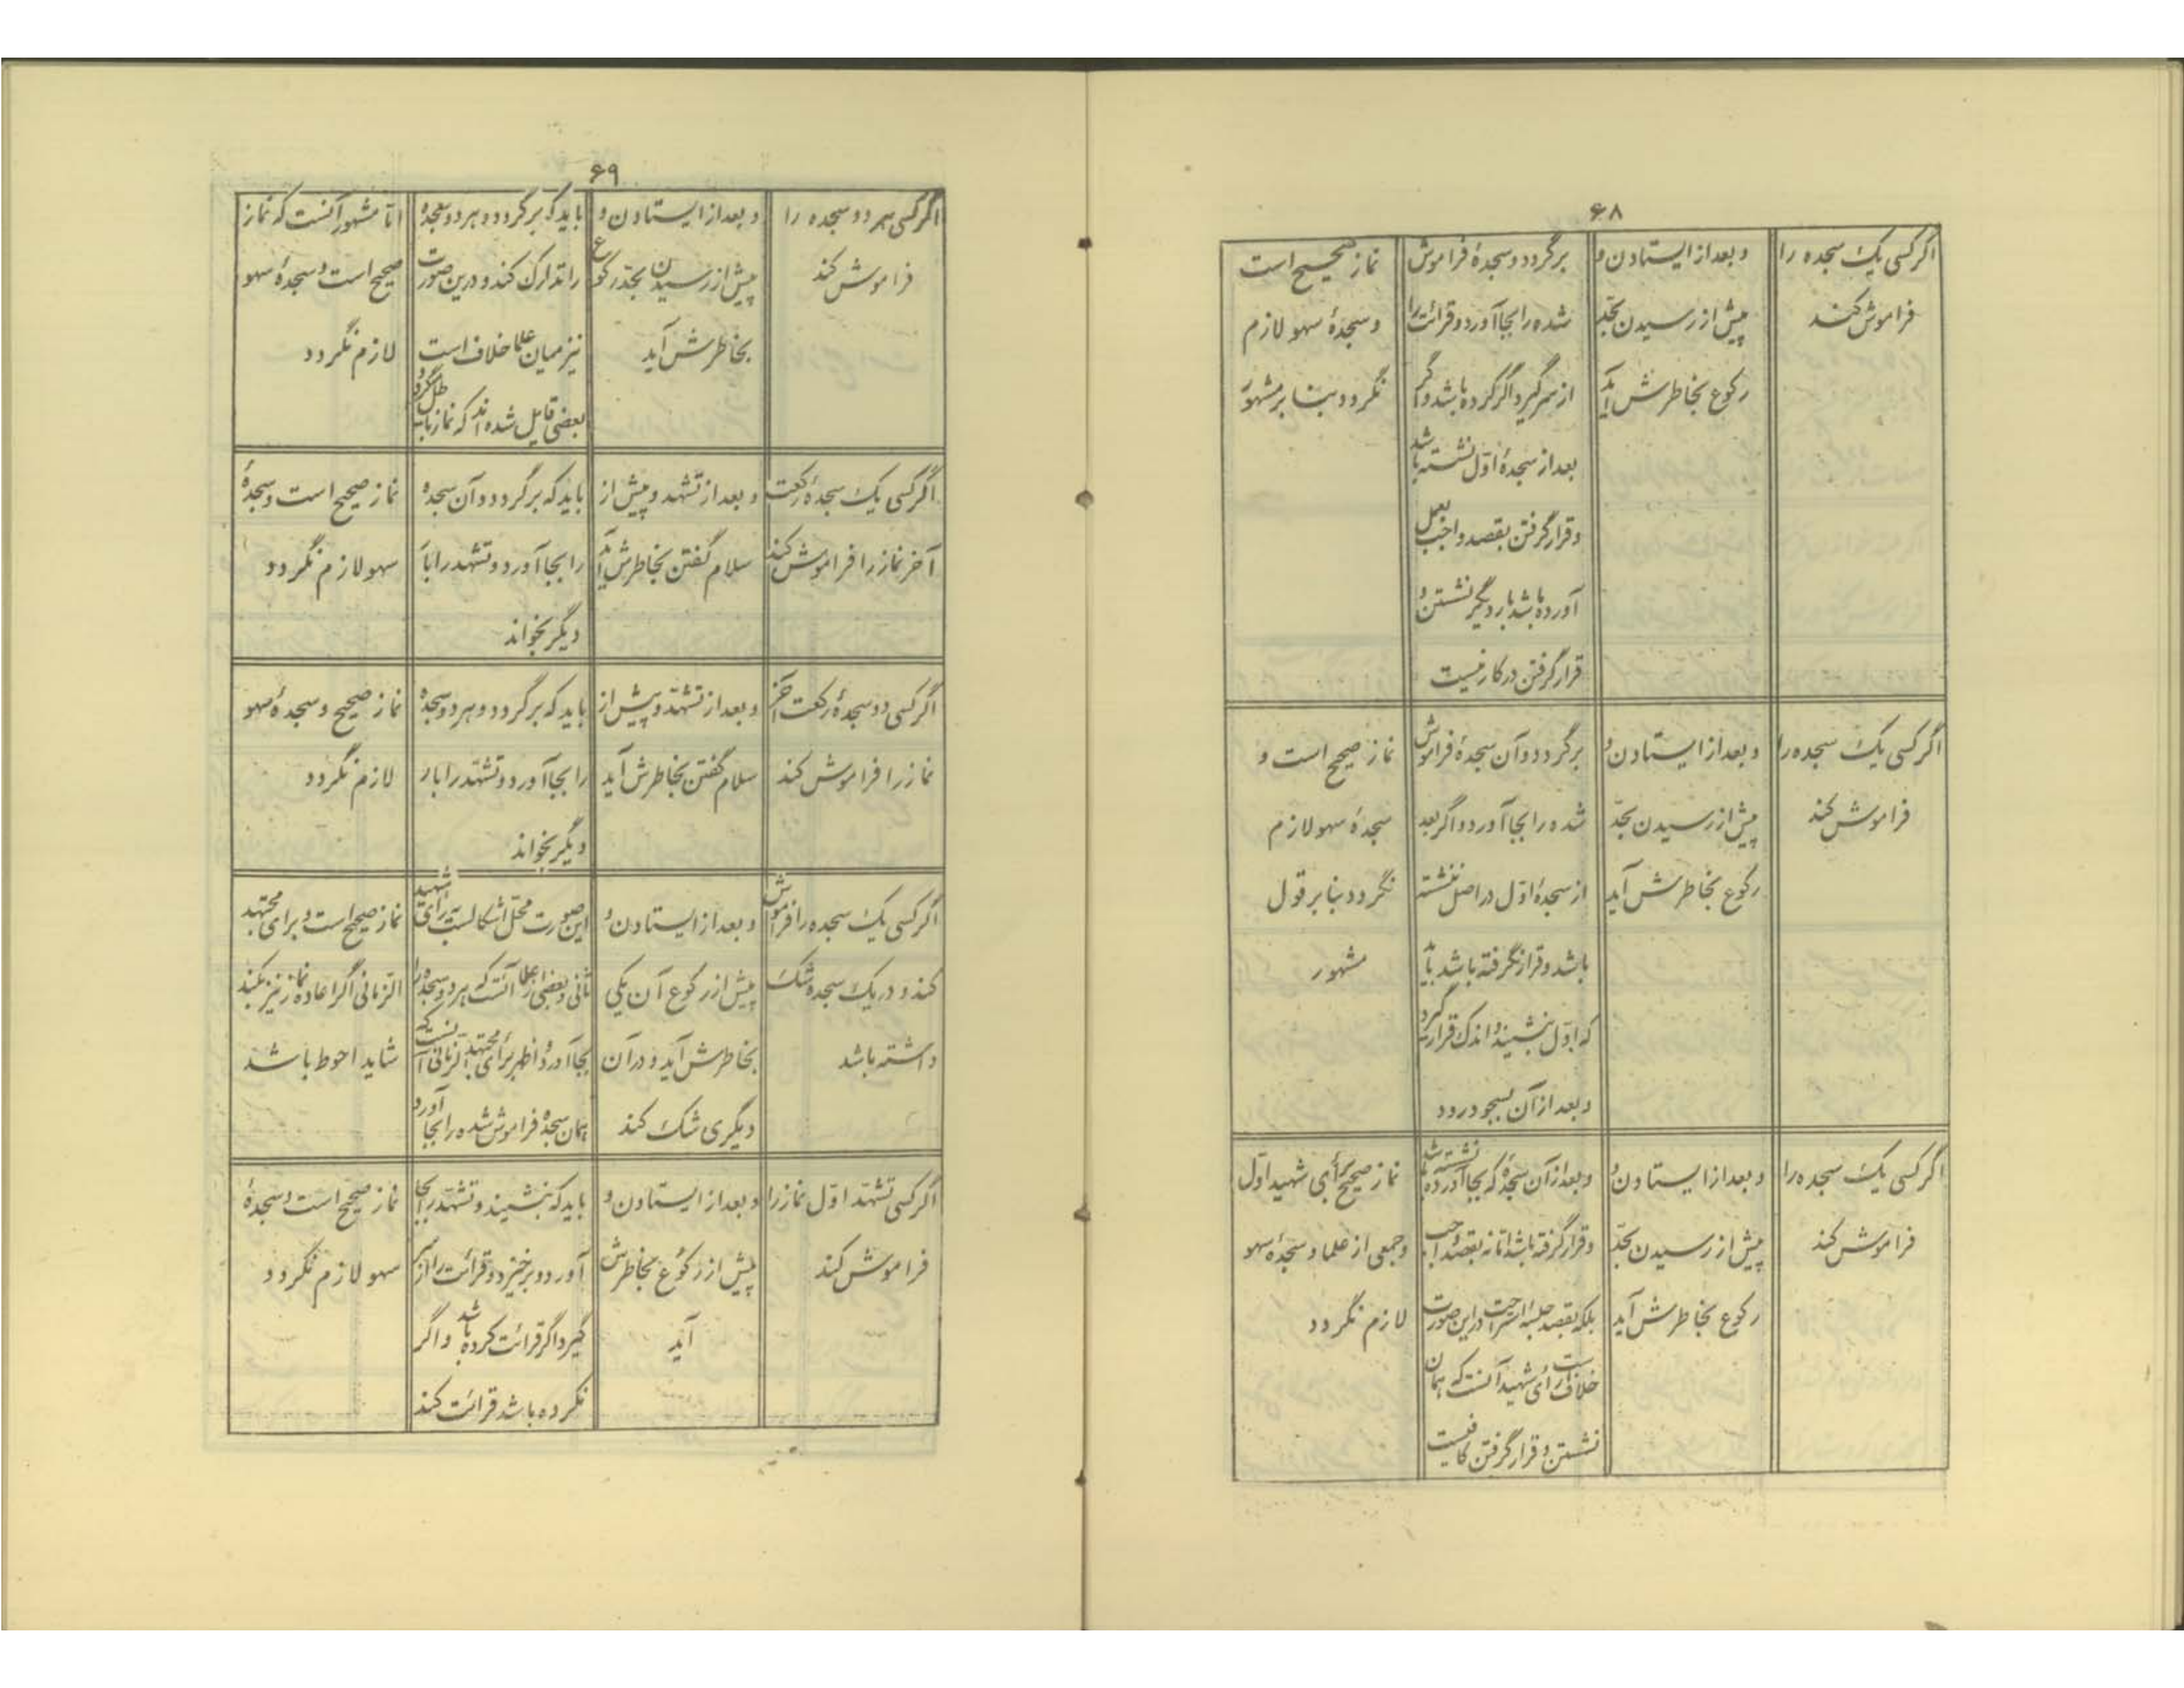 ۶۸
اگر کسی یک سجده را
فراموش کند
و بعد از ایستادن و
پیش از رسیدن بحد
رکوع بخاطرش آید
برگردد و سجدهٔ فراموش
شده را بجا آورد و قرائت را
از سر گیرد اگر کرده باشد و اگر
بعد از سجدهٔ اول نشسته باشد
و قرار گرفتن بقصد واجب بعمل
آورده باشد بار دیگر نشستن و
قرار گرفتن در کار نیست
نماز صحیح است
و سجدهٔ سهو لازم
نگردد بنا بر مشهور
اگر کسی یک سجده را
فراموش کند
و بعد از ایستادن و
پیش از رسیدن بحد
رکوع بخاطرش آید
برگردد و آن سجدهٔ فراموش
شده را بجا آورد و اگر بعد
از سجدهٔ اول در اصل ننشسته
باشد و قرار نگرفته باشد باید
که اول بنشیند و اندک قرار گیرد
و بعد از آن بسجود رود
نماز صحیح است و
سجدهٔ سهو لازم
نگردد بنا بر قول
مشهور
اگر کسی یک سجده را
فراموش کند
و بعد از ایستادن و
پیش از رسیدن بحد
رکوع بخاطرش آید
و بعد از آن سجده که بجا آورده نشسته باشد
و قرار گرفته باشد اما نه بقصد واجب
بلکه بقصد جلسه استراحت در این صورت
خلافست رأی شهید آنست که همان
نشستن و قرار گرفتن کافیست
نماز صحیح برأی شهید اول
و جمعی از علما و سجدهٔ سهو
لازم نگردد
۶۹
اگر کسی هر دو سجده را
فراموش کند
و بعد از ایستادن و
پیش از رسیدن بحد رکوع
بخاطرش آید
باید که برگردد و هر دو سجده
را تدارک کند و درین صورت
نیز میان علما خلاف است
بعضی قایل شده اند که نماز باطل گردد
اما مشهور آنست که نماز
صحیح است و سجدهٔ سهو
لازم نگردد
اگر کسی یک سجدهٔ رکعت
آخر نماز را فراموش کند
و بعد از تشهد و پیش از
سلام گفتن بخاطرش آید
باید که برگردد و آن سجده
را بجا آورد و تشهد را با
دیگر بخواند
نماز صحیح است و سجدهٔ
سهو لازم نگردد
اگر کسی دو سجدهٔ رکعت آخر
نماز را فراموش کند
و بعد از تشهد و پیش از
سلام گفتن بخاطرش آید
باید که برگردد و هر دو سجده
را بجا آورد و تشهد را بار
دیگر بخواند
نماز صحیح و سجدهٔ سهو
لازم نگردد
اگر کسی یک سجده را فراموش
کند و در یک سجده شک
داشته باشد
و بعد از ایستادن و
پیش از رکوع آن یکی
بخاطرش آید و در آن
دیگری شک کند
این صورت محل اشکالست رأی شهید
ثانی و بعضی از علما آنست که هر دو سجده را
بجا آورد و اظهر برأی مجتهد الزمانی آنست که
همان سجدهٔ فراموش شده را بجا آورد
نماز صحیح است و برای مجتهد
الزمانی اگر اعاده نماز نیز بکند
شاید احوط باشد
اگر کسی تشهد اول نماز را
فراموش کند
و بعد از ایستادن و
پیش از رکوع بخاطرش
آید
باید که بنشیند و تشهد را بجا
آورد و برخیزد و قرائت را از سر
گیرد اگر قرائت کرده باشد و اگر
نکرده باشد قرائت کند
نماز صحیح است و سجدهٔ
سهو لازم نگردد